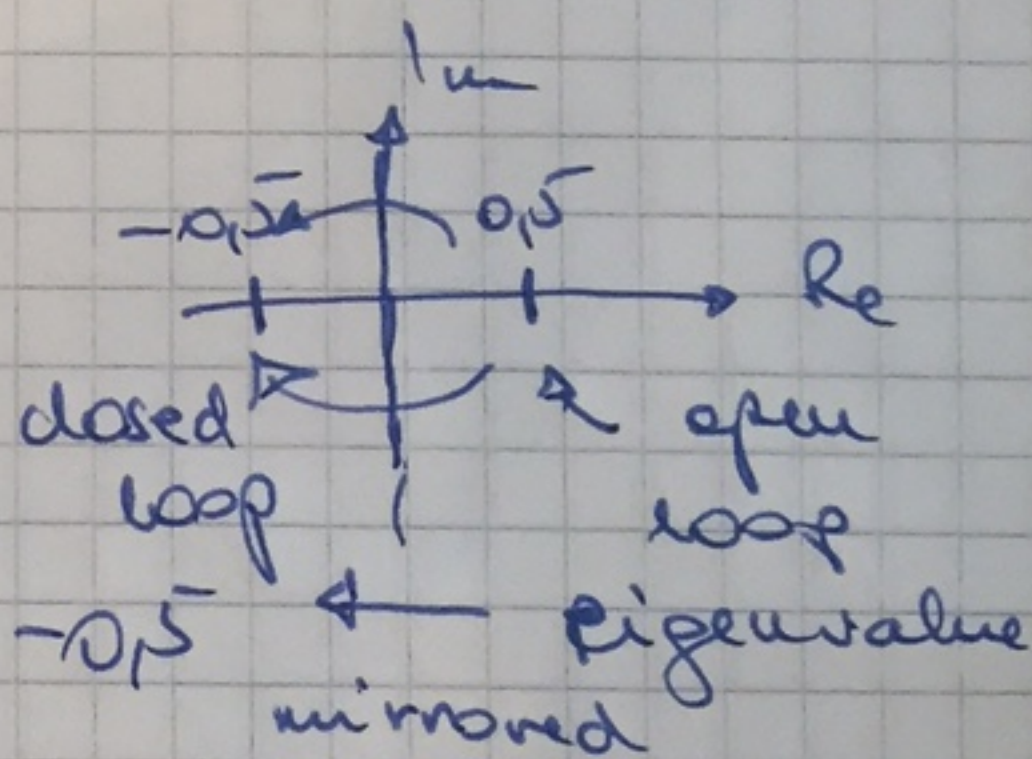 Im
-0,5 0,5
Re
closed open
loop loop
-0,5 eigenvalue
mirrored